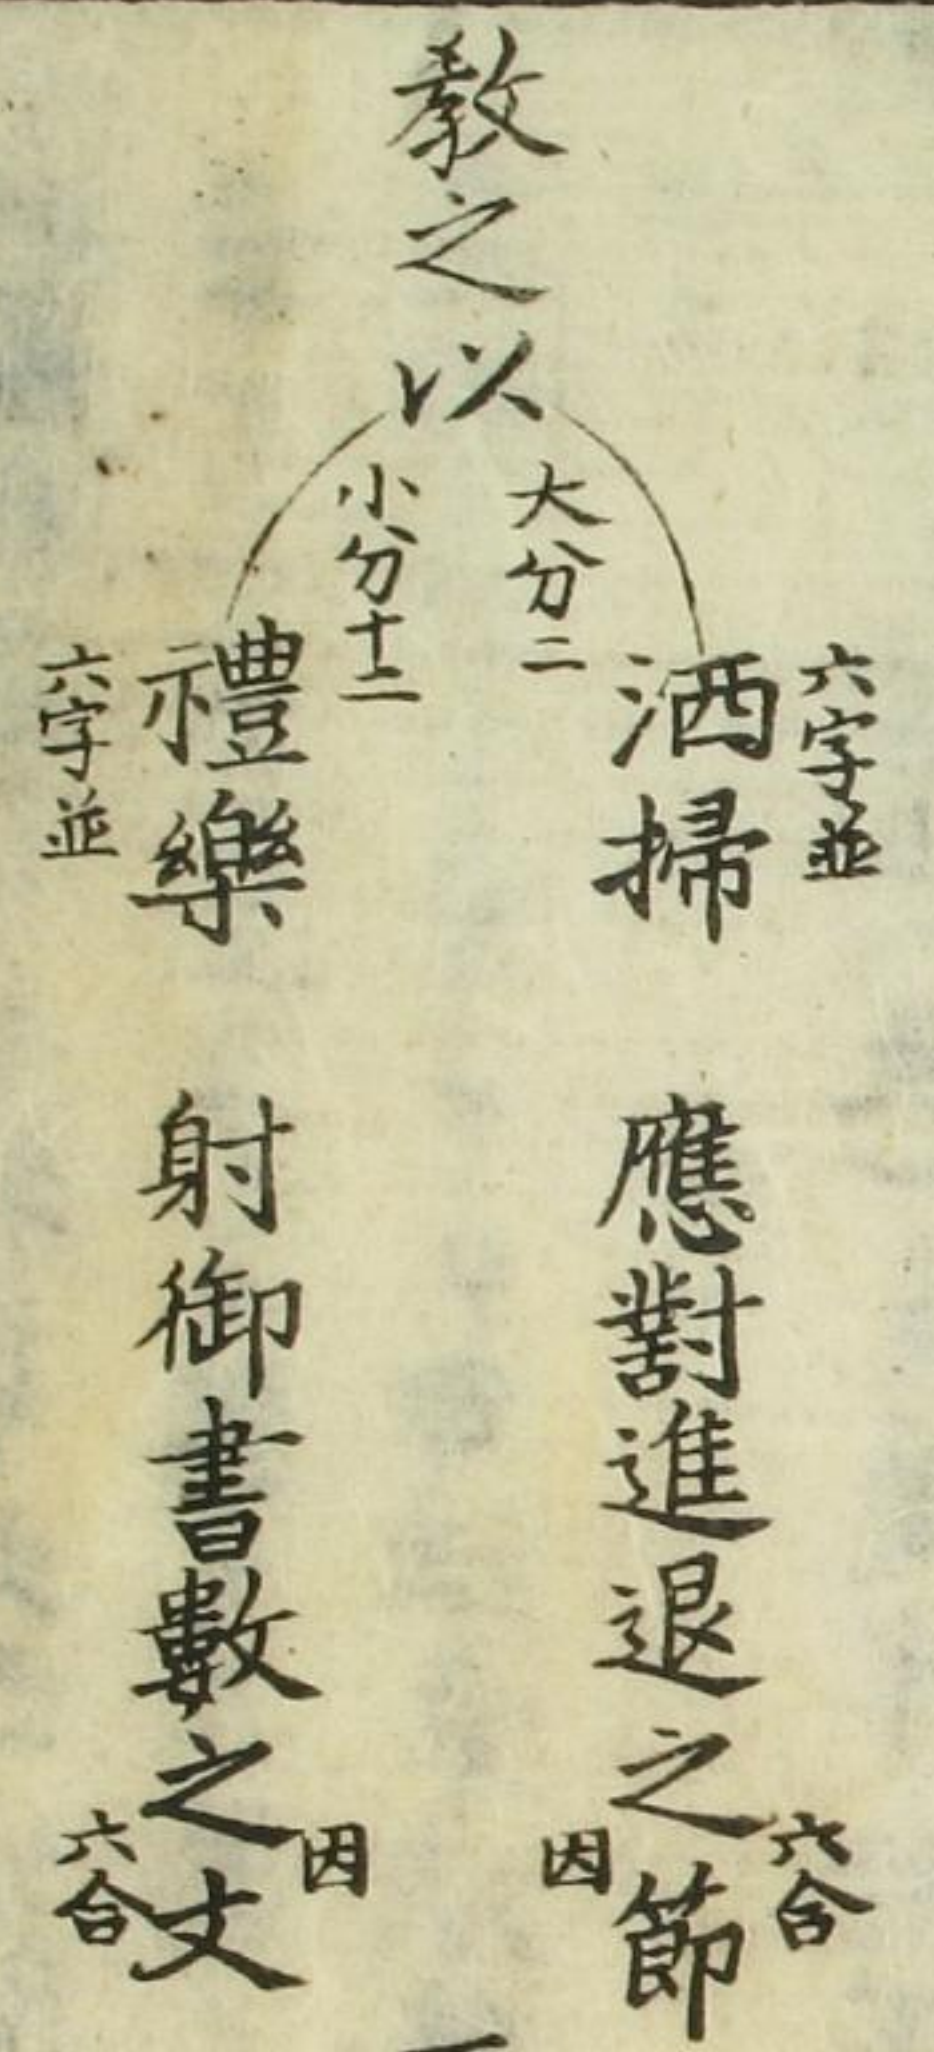 教之以
大分二
小分十二
六字並
洒掃
應對進退之節
六合
因
禮樂
六字並
射御書數之文
因
六合